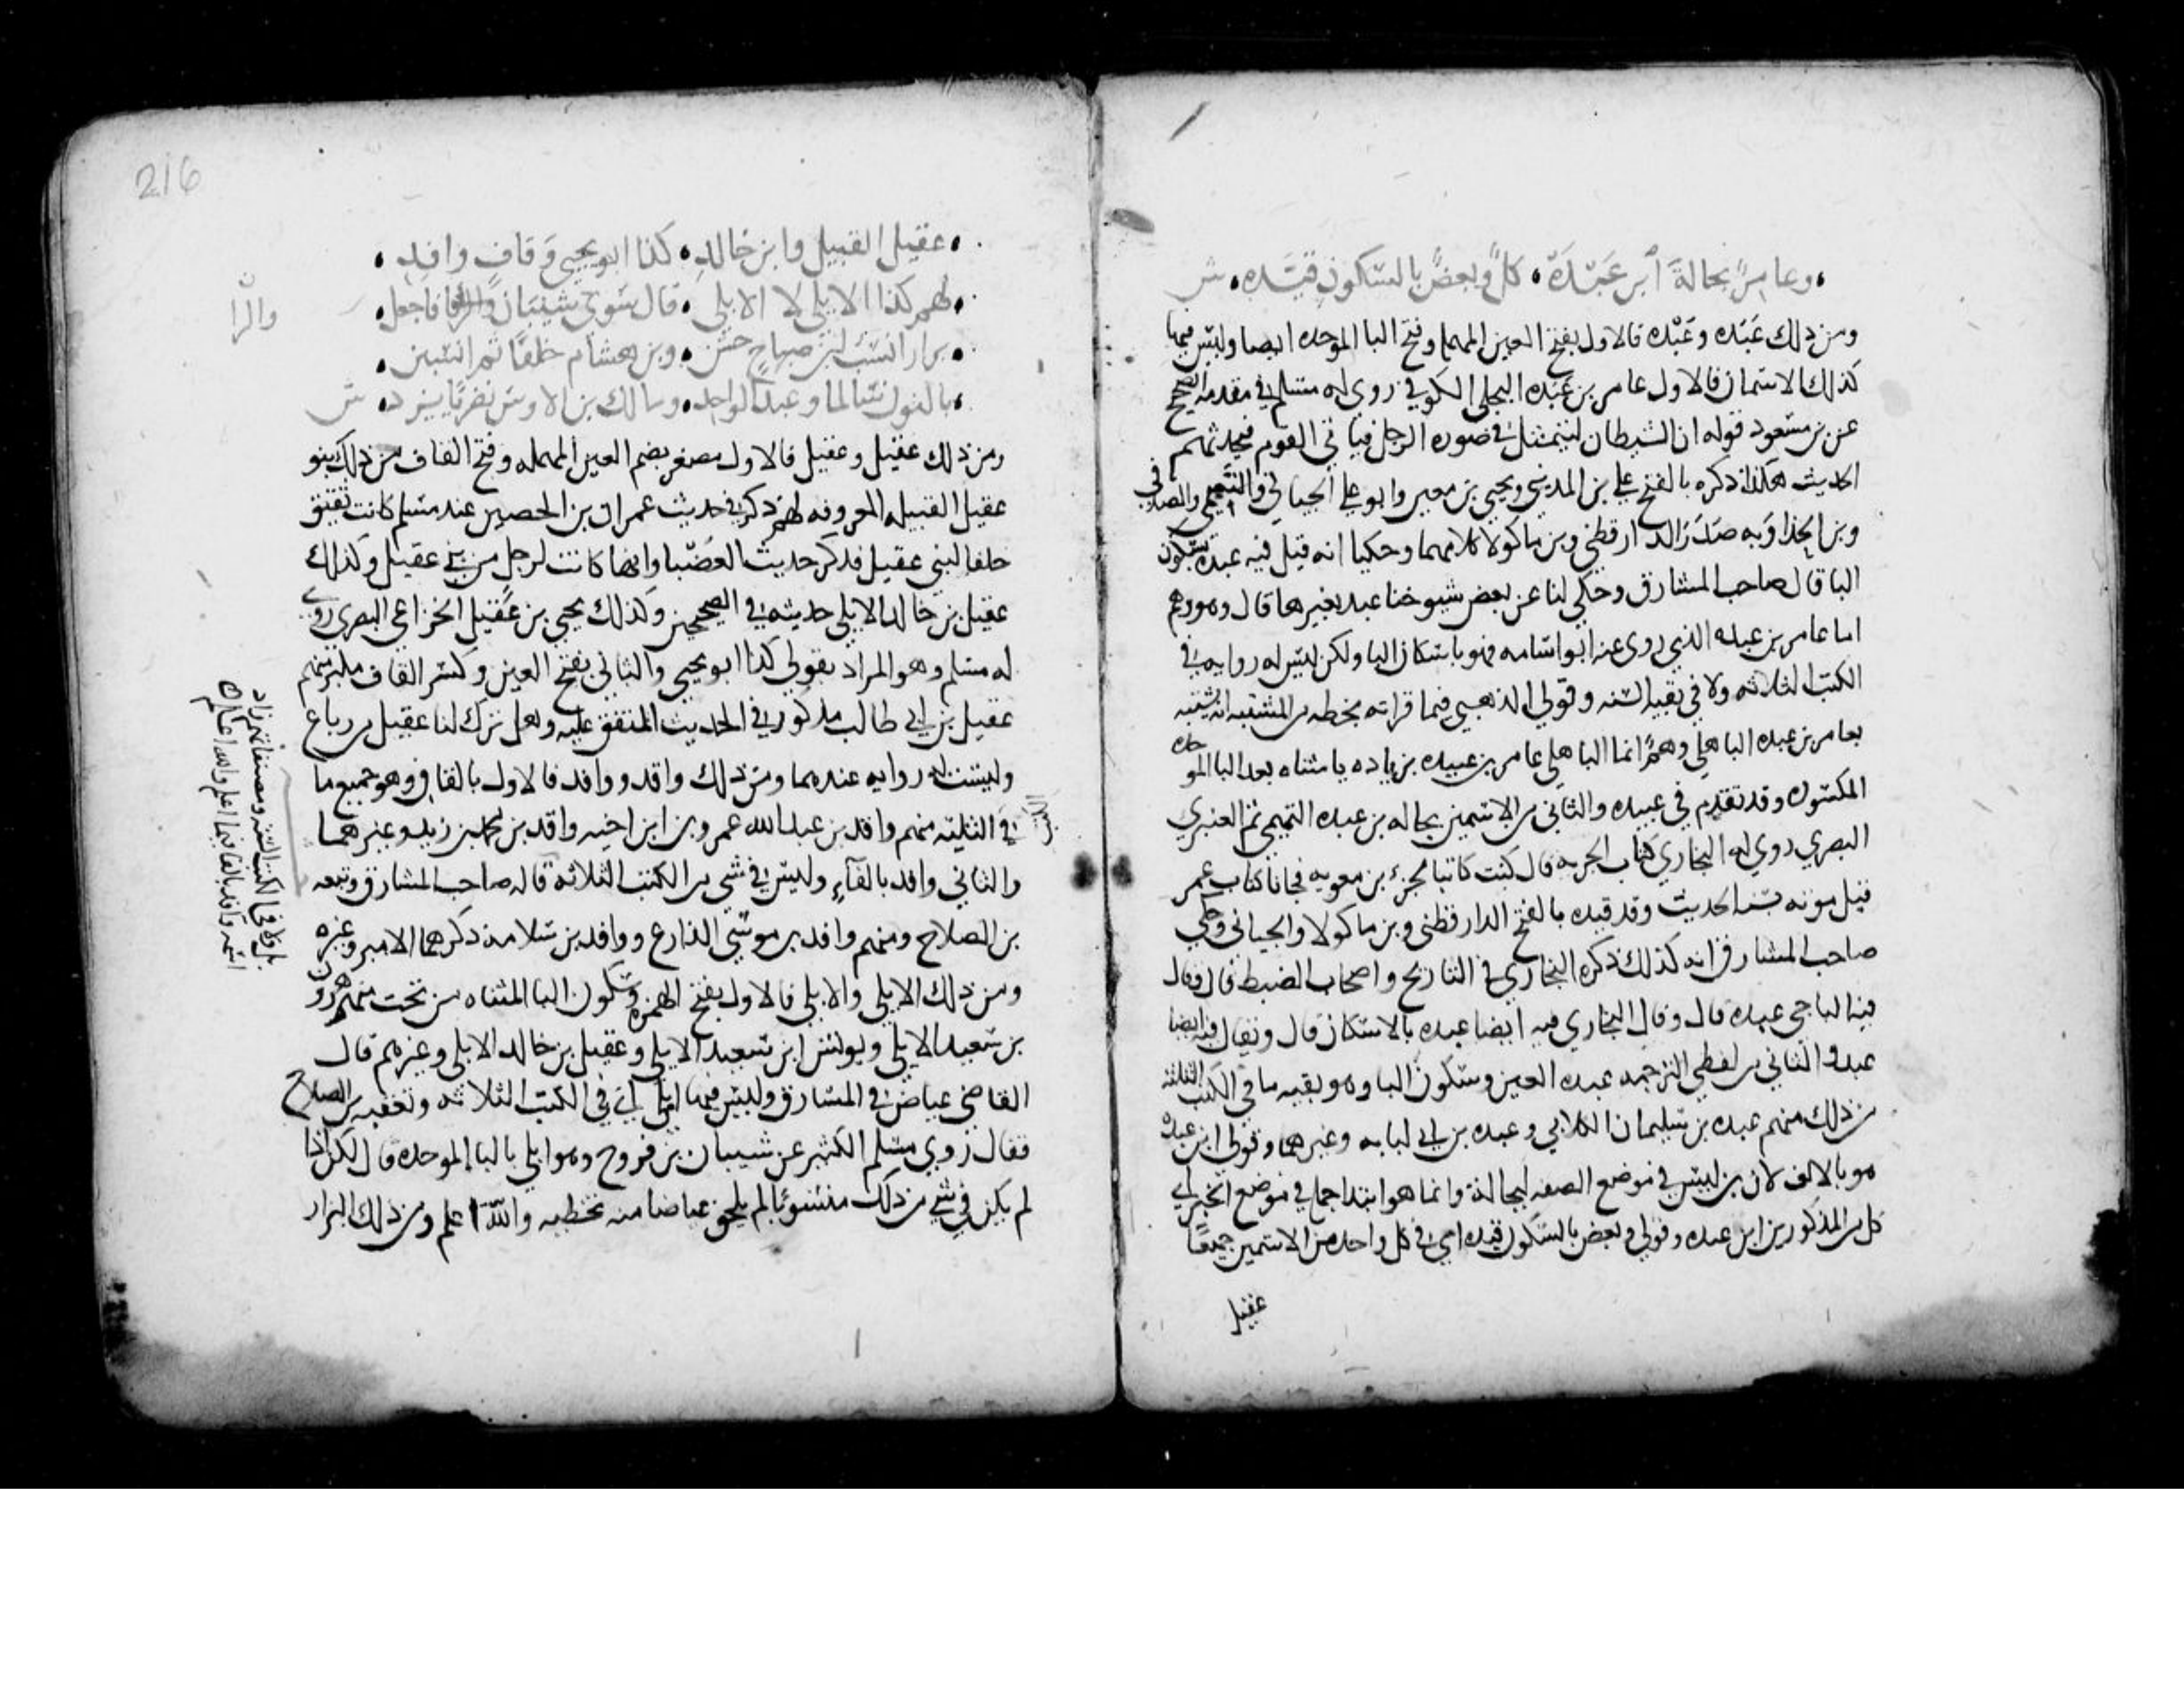 وعامرا بجالة ابن عبدة • كل وبعض بالسكون قيده • ش
ومن ذلك عبده وعبده فالاول بفتح العين المهملة وفتح البا الموحده ايضا وليس فيها
كذلك الا اسمان فالاول عامر بن عبده البجلي الكوفي روى له مسلم في مقدمة الصحيح
عن بن مسعود قوله ان الشيطان ليتمثل في صورة الرجل فياتي القوم فيحدثهم
الحديث هكذا ذكره بالفتح علي بن المديني ويحيى بن معين وابو علي الجياني والتميمي والصدفي
وبن الحذا وبه صدر الدارقطني وبن ماكولا كلامهما وحكيا انه قيل فيه عبده بسكون
البا قال صاحب المشارق وحكى لنا عن بعض شيوخنا عبد بغير ها قال وهو وهم
اما عامر بن عبده الذي روى عنه ابو اسامه فهو باسكان البا ولكن ليس له رواية في
الكتب الثلاثه ولا في بقية الستة وقول الذهبي فيما قراته بخطه من المشتبه انه يشتبه
بعامر بن عبده الباهلي وهم انما الباهلي عامر بن عبيده بزياده يا مثناه بعد البا الموحده
المكسوره وقد تقدم في عبيده والثاني من الاسمين بجاله بن عبده التميمي ثم العنبري
البصري روى له البخاري في كتاب الجزية قال كنت كاتبا لجزء بن معويه فجانا كتاب عمر
قبل موته بسنه الحديث وقد قيده بالفتح الدارقطني وبن ماكولا والجياني وحكى
صاحب المشارق انه كذلك ذكره البخاري في التاريخ واصحاب الضبط قال وقال
فيه الباجي عبده قال وقال البخاري فيه ايضا عبده بالاسكان قال ويقال فيه ايضا
عبد والثاني من لفظي الترجمه عبده العين وسكون البا وهو بقية ما في الكتب الثلاثه
من ذلك منهم عبده بن سليمان الكلابي وعبده بن ابي لبابه وغيرهما وقولي ابن عبده
هو بالالف لان بن ليس في موضع الصفه لبجالة وانما هو ابتدا جملة في موضع الخبر اي
كل من المذكورين ابن عبده وقولي وبعض بالسكون قيده اي في كل واحد من الاسمين جميعا
عقيل
216
• عقيل القبيل وابن خالد • كذا ابو يحيى وقاف واقد •
• لهم كذا الايلي لا الابلي • قال سوى شيبان والرا فاجعل •
والرا
• بزار انسب لبن صباح حسن • وبن هشام خلفا ثم انسبن •
• بالنون سالما وعبد الواحد • ومالك بن الاوس نصريا يرد • ش
ومن ذلك عقيل وعقيل فالاول مصغر بضم العين المهمله وفتح القاف من ذلك بنو
عقيل القبيله المعروفه لهم ذكر في حديث عمران بن الحصين عند مسلم كانت ثقيف
حلفا لبني عقيل فذكر حديث العضبا وانها كانت لرجل من بني عقيل وكذلك
عقيل بن خالد الايلي حديثه في الصحيحين وكذلك يحيى بن عقيل الخزاعي البصري روى
له مسلم وهو المراد بقولي كذا ابو يحيى والثاني بفتح العين وكسر القاف مكبر منهم
عقيل بن ابي طالب مذكور في الحديث المتفق عليه وهل ترك لنا عقيل من رباع
وليست له روايه عندهما ومن ذلك واقد ووافد فالاول بالقاف وهو جميع ما
في الثلثه منهم واقد بن عبد الله بن عمر وبن ابن اخيه واقد بن محمد بن زيد وغيرهما
والثاني وافد بالفاء وليس في شي من الكتب الثلاثه قاله صاحب المشارق وتبعه
بن الصلاح ومنهم وافد بن موسى الذارع ووافد بن سلامه ذكرهما الامير وغيره
ومن ذلك الايلي والابلي فالاول بفتح الهمزه وسكون اليا المثناه من تحت منهم هرون
بن سعيد الايلي ويونس ابن يزيد الايلي وعقيل بن خالد الايلي وغيرهم قال
القاضي عياض في المشارق وليس فيها ابلي اي في الكتب الثلاثه وتعقبه بن الصلاح
فقال روى مسلم الكثير عن شيبان بن فروخ وهو ابلي بالبا الموحده قال لكن اذا
لم يكن في شي من ذلك منسوبا لم يلحق عياضا منه تخطيه والله اعلم ومن ذلك البزار
بل ولا في الكتب الستة ومصنفاتهم زاد
اسمه وافد بالفا فيما اعلم والله اعلم